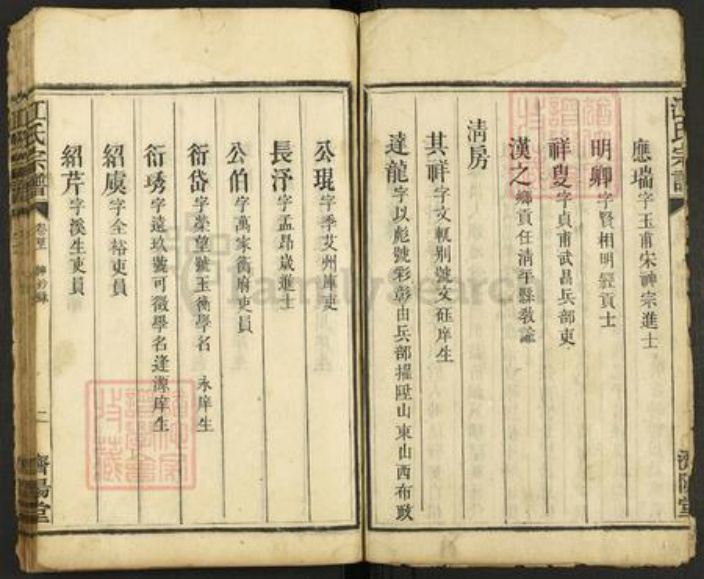 江氏宗譜
濟陽堂
應瑞字玉甫宋神宗進士
明卿字賢相明經貢士
祥叟字貞甫武昌兵部吏
漢之鄉貢任清平縣教諭
清房
其祥字文軏別號文砡庠生
達龍字以彪號彩彰由兵部擢陞山東山西布政
公琨字季艾州庫吏
長浮字孟昂歲進士
公伯字萬家衡府吏員
衍岱字榮望號玉衡學名 永庠生
衍琇字遠玖號可徵學名逢源庠生
紹虞字全裕吏員
紹芹字溪生吏員
江氏宗譜
二
濟陽堂
FamilySearch